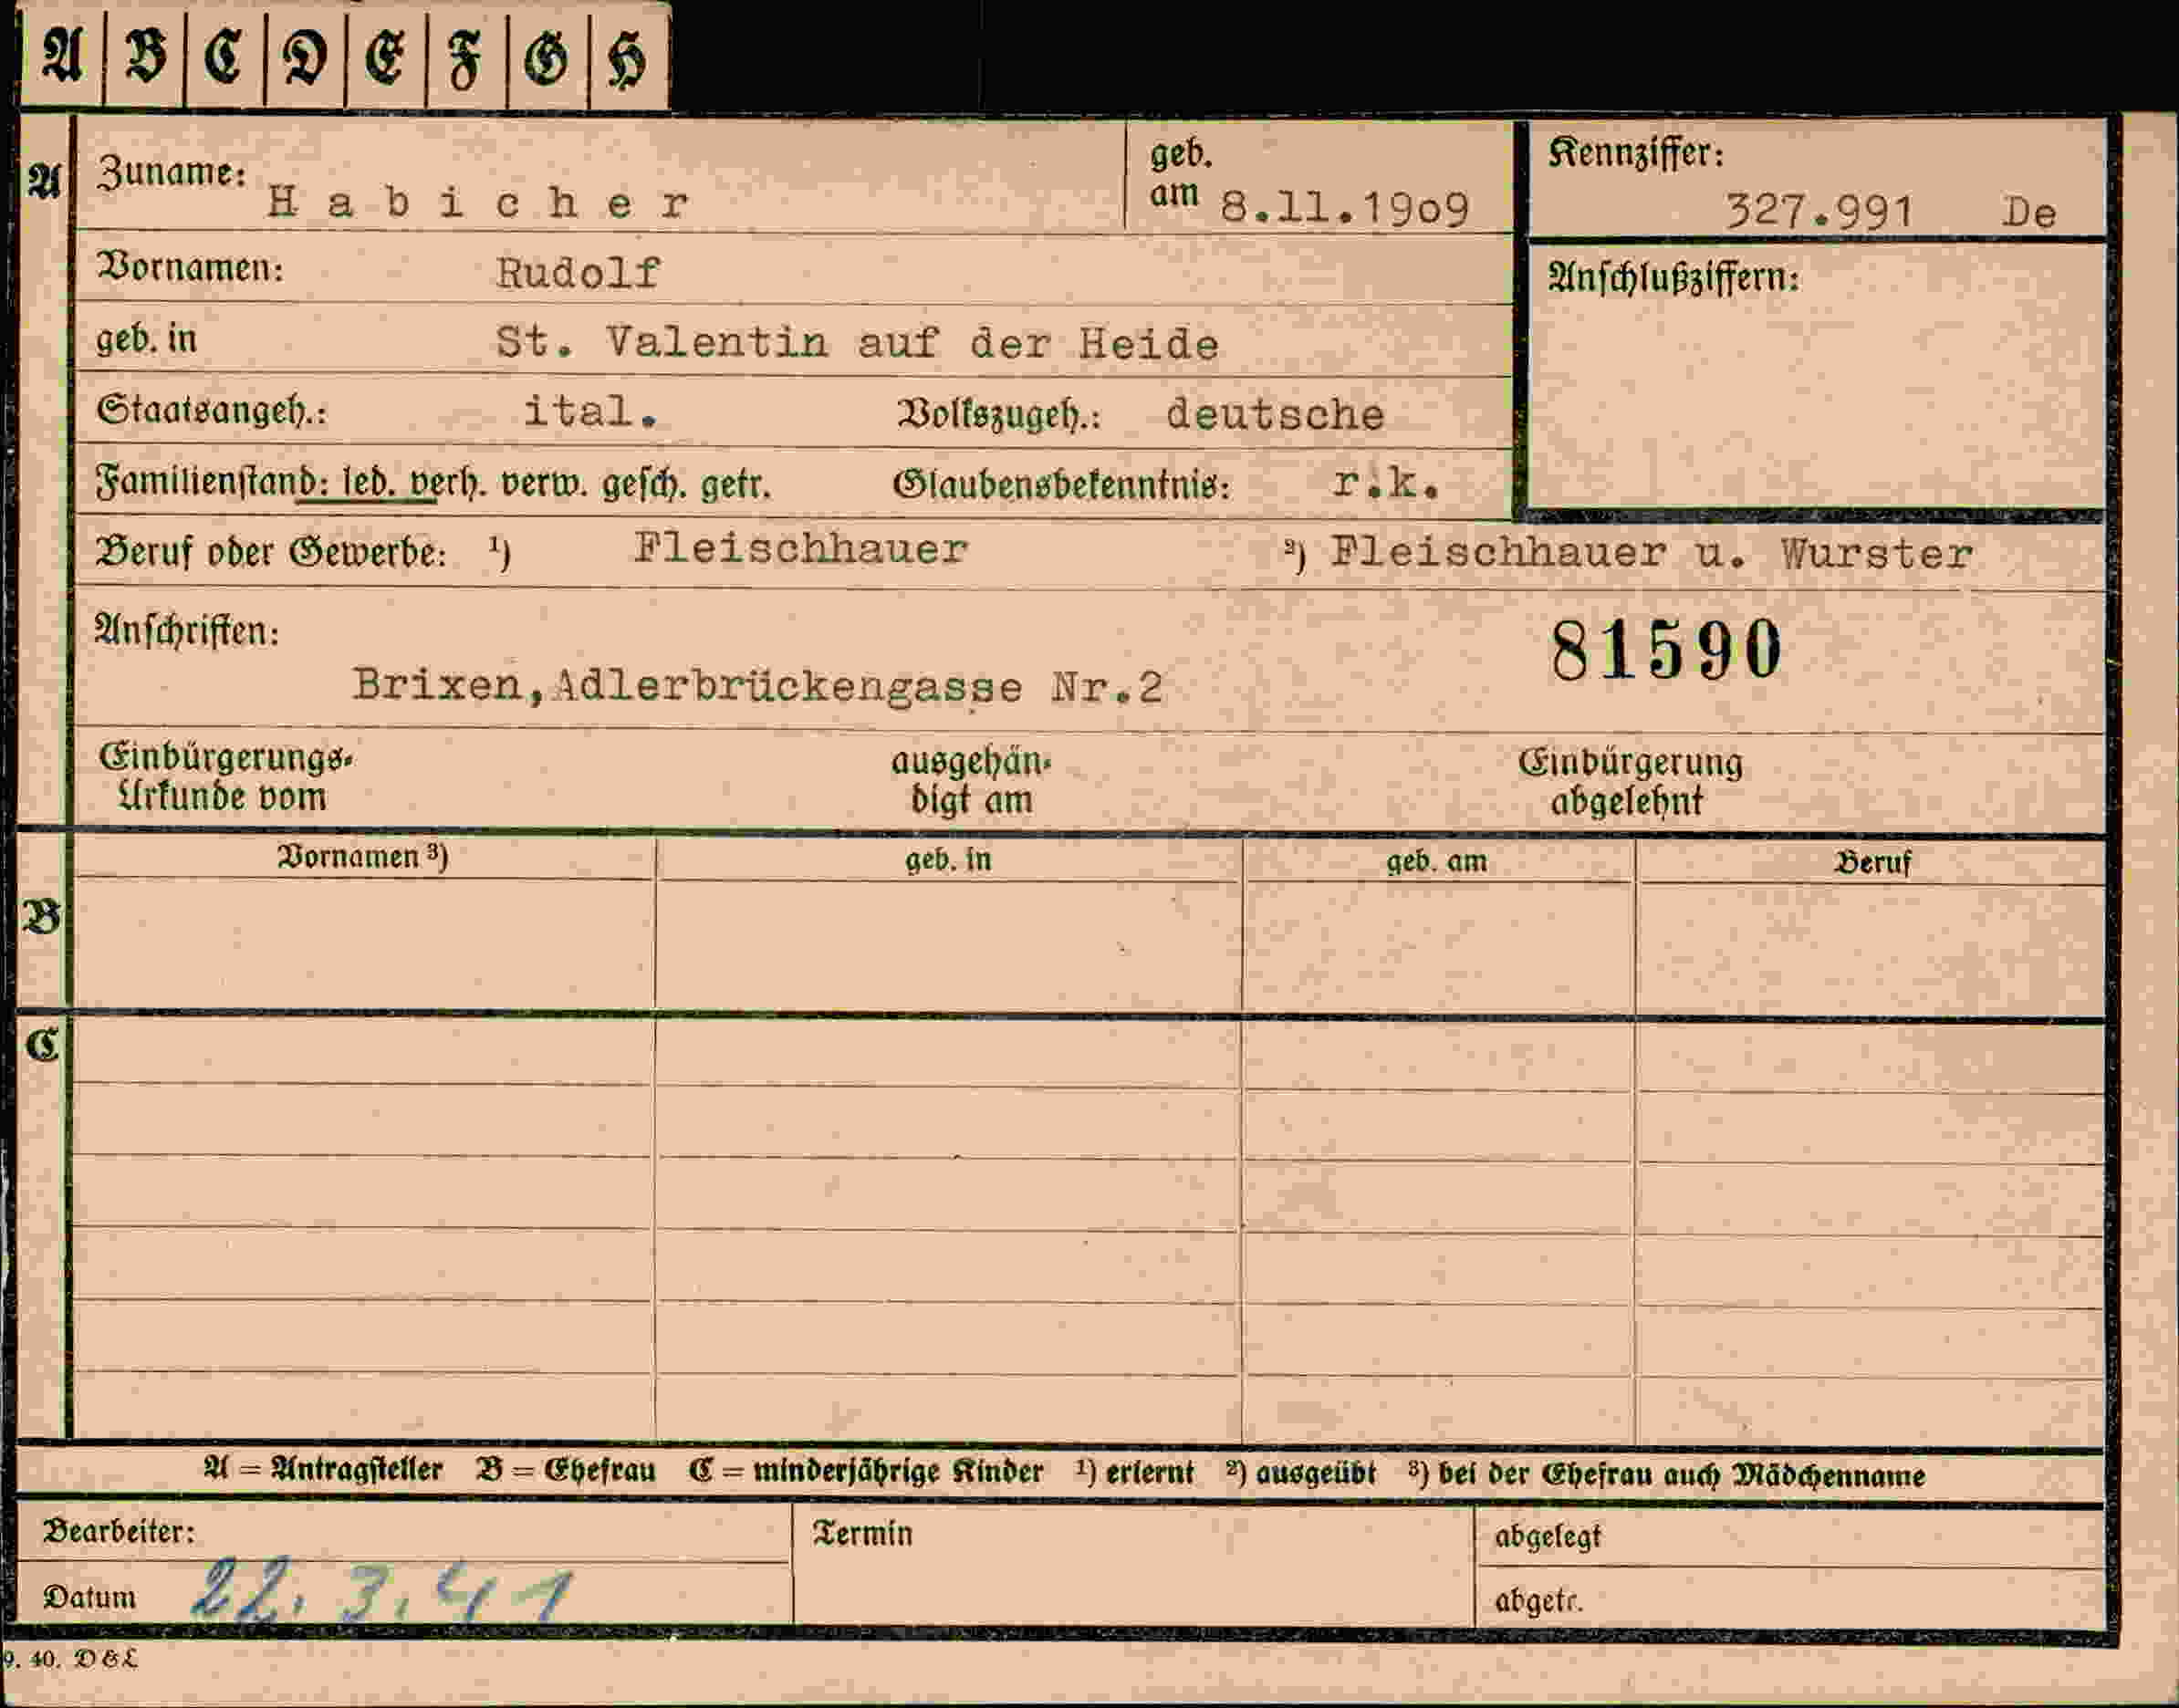 A B C D E F G H
A Zuname: Habicher geb. am 8.11.1909 Kennziffer: 327.991 De
Vornamen: Rudolf Anschlußziffern:
geb. in St. Valentin auf der Heide
Staatsangeh.: ital. Volkszugeh.: deutsche
Familienstand: led. verh. verw. gesch. getr. Glaubensbekenntnis: r.k.
Beruf oder Gewerbe: ¹) Fleischhauer ²) Fleischhauer u. Wurster
Anschriften: 81590
Brixen,Adlerbrückengasse Nr.2
Einbürgerungs- ausgehän- Einbürgerung
Urkunde vom digt am abgelehnt
Vornamen ³) geb. in geb. am Beruf
B
C
A = Antragsteller B = Ehefrau C = minderjährige Kinder ¹) erlernt ²) ausgeübt ³) bei der Ehefrau auch Mädchenname
Bearbeiter: Termin abgelegt
Datum 22.3.41 abgetr.
9. 40. D&L